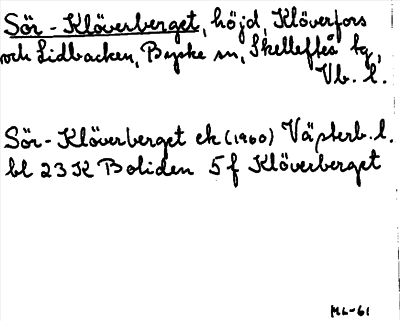 Sör-Klöverberget, höjd, Klöverfors
och Lidbacken, Byske sn, Skellefteå tg,
Vb. l.
Sör-Klöverberget ek (1960) Västerb. l.
bl 23 K Boliden 5 f Klöverberget
ML-61